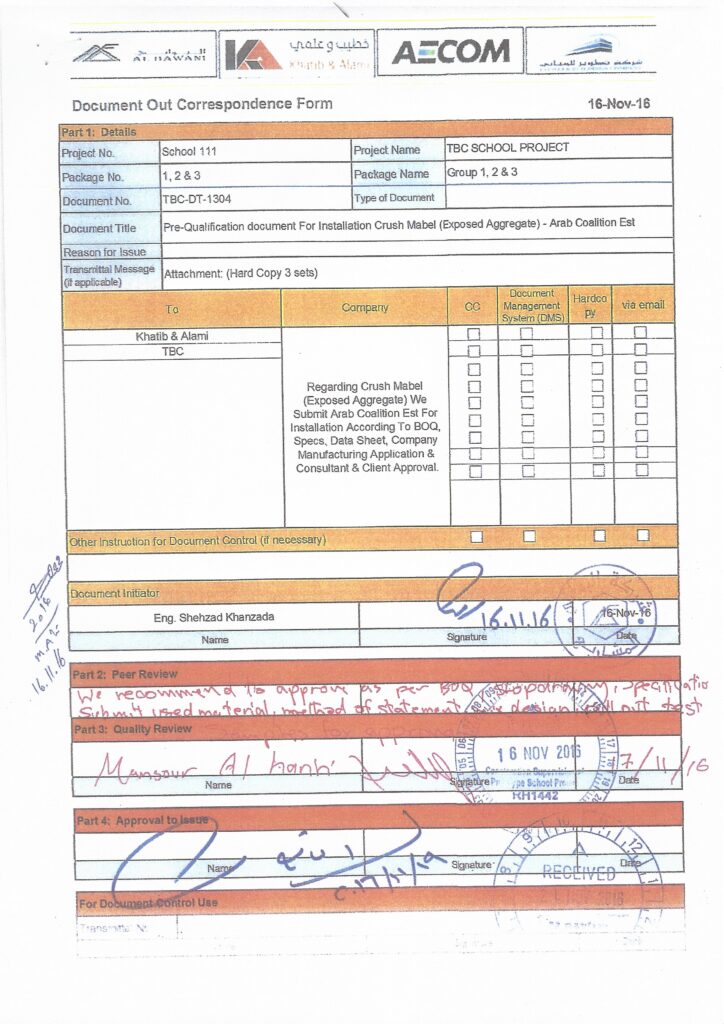 AL BAWANI
خطيب و علمي
Khatib & Alami
AECOM
شركة تطوير المباني
Document Out Correspondence Form
16-Nov-16
Part 1: Details
Project No. School 111 Project Name TBC SCHOOL PROJECT
Package No. 1, 2 & 3 Package Name Group 1, 2 & 3
Document No. TBC-DT-1304 Type of Document
Document Title Pre-Qualification document For Installation Crush Mabel (Exposed Aggregate) - Arab Coalition Est
Reason for Issue
Transmittal Message (if applicable) Attachment: (Hard Copy 3 sets)
To Company CC Document Management System (DMS) Hardcopy via email
Khatib & Alami
TBC
Regarding Crush Mabel
(Exposed Aggregate) We
Submit Arab Coalition Est For
Installation According To BOQ,
Specs, Data Sheet, Company
Manufacturing Application &
Consultant & Client Approval.
Other Instruction for Document Control (if necessary)
Document Initiator
Eng. Shehzad Khanzada 16.11.16 16-Nov-16
Name Signature Date
2016
16.11.16
Part 2: Peer Review
We recommend to approve as per BOQ
Submit used material, method of statement
Part 3: Quality Review
Mansour Al 16 NOV 2016 7/11/16
Name Signature Date
RH1442
Part 4: Approval to Issue
Name Signature Date
RECEIVED
For Document Control Use
Transmittal No.
Signature